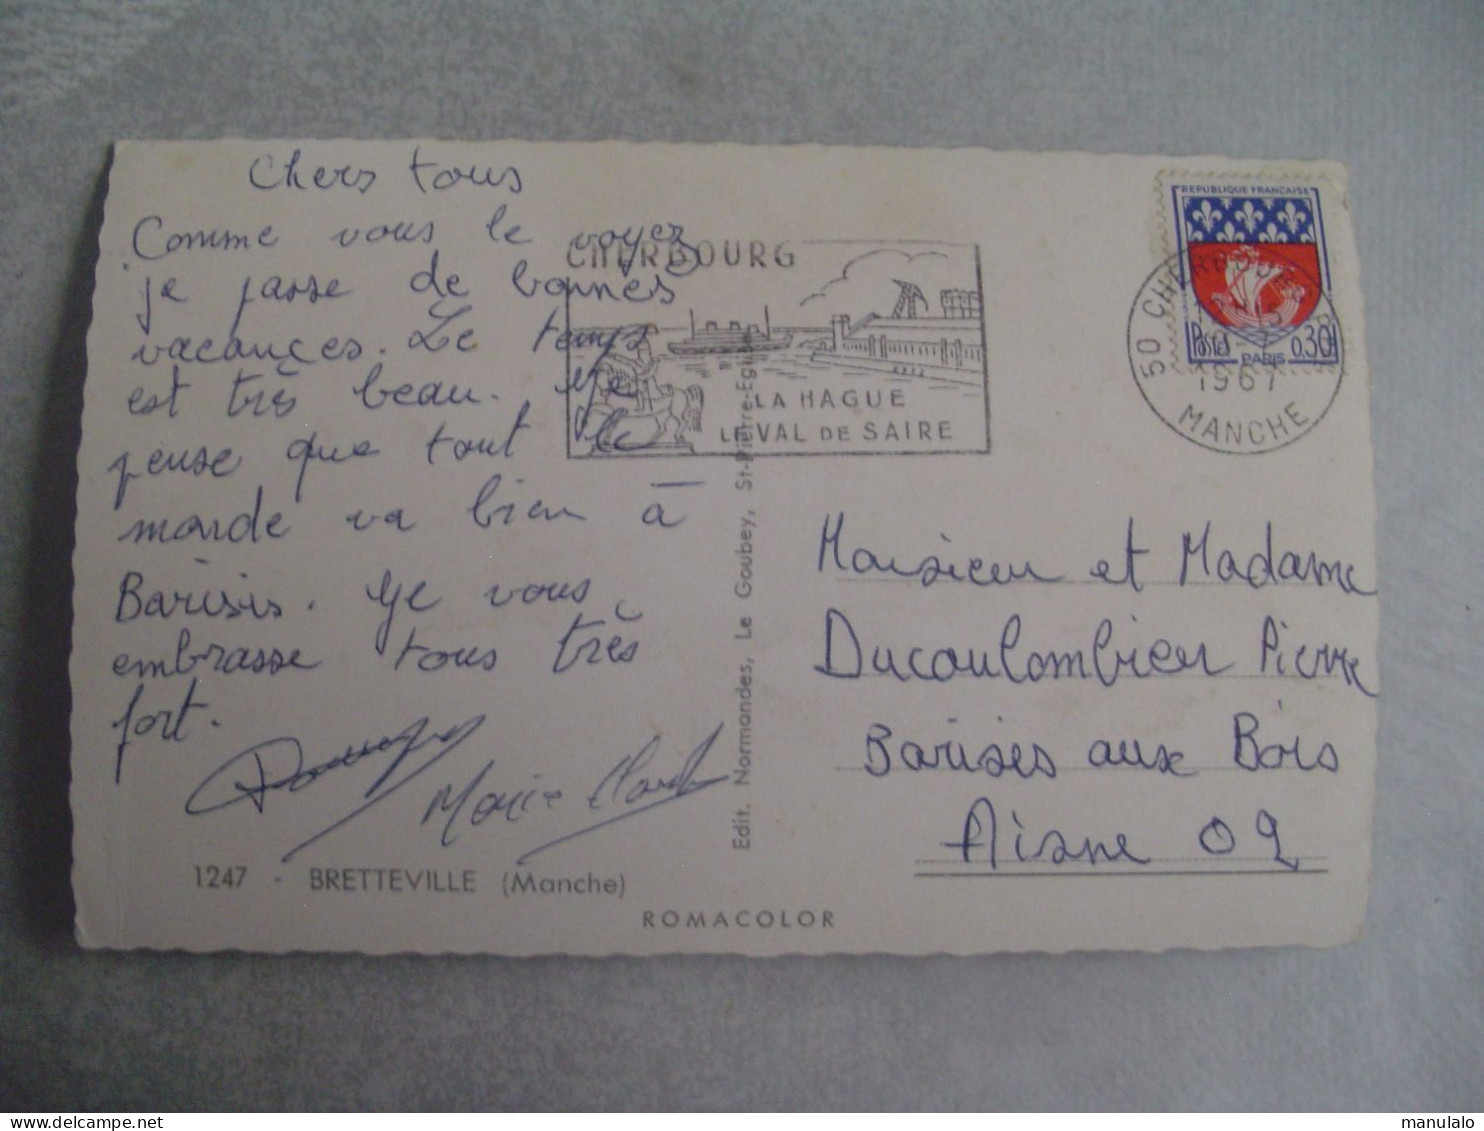 Chers tous
Comme vous le voyez
je passe de bonnes
vacances. Le temps
est très beau. Je
pense que tout le
monde va bien à
Barisis. Je vous
embrasse tous très
fort.
Marie Claude
1247 - BRETTEVILLE (Manche)
ROMACOLOR
Edit. Normandes, Le Goubey, St-Pierre-Eglise
CHERBOURG
LA HAGUE
LE VAL DE SAIRE
REPUBLIQUE FRANCAISE
Postes 0.30F
PARIS
50 CHERBOURG
1967
MANCHE
Monsieur et Madame
Ducoulombier Pierre
Barises aux Bois
Aisne 02
manulalo